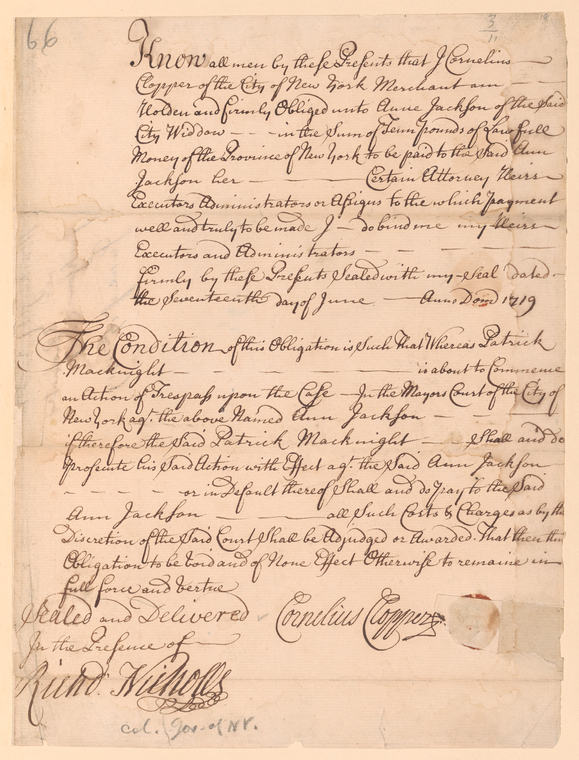 66
3/11
Know all men by these Presents that I Cornelius
Clopper of the City of New York Merchant am
Holden and Firmly Obliged unto Anne Jackson of the Said
City Widdow - - - in the Sum of Tenn pounds of Lawfull
Money of the Province of New York to be paid to the Said Ann
Jackson her Certain Attorney Heirs
Executors Administrators or Assigns to the which Payment
well and truly to be made I do bind me my Heirs
Executors and Administrators
firmly by these Presents Sealed with my Seal dated
the Seventeenth day of June Anno Dom 1719
The Condition of this Obligation is Such That Whereas Patrick
Macknight is about to Commence
an Action of Trespass upon the Case In the Mayors Court of the City of
New York agt. the above Named Ann Jackson
if therefore the Said Patrick Macknight Shall and do
Prosecute his Said Action with Effect agt. the Said Ann Jackson
or in Default thereof Shall and do pay to the Said
Ann Jackson all Such Costs & Charges as by the
Discretion of the Said Court Shall be Adjudged or Awarded. That then this
Obligation to be Void and of None Effect Otherwise to remaine in
full force and Vertue
Sealed and Delivered Cornelius Clopper
In the Presence of
Richd. Nicholls
col. Gov. of N.Y.